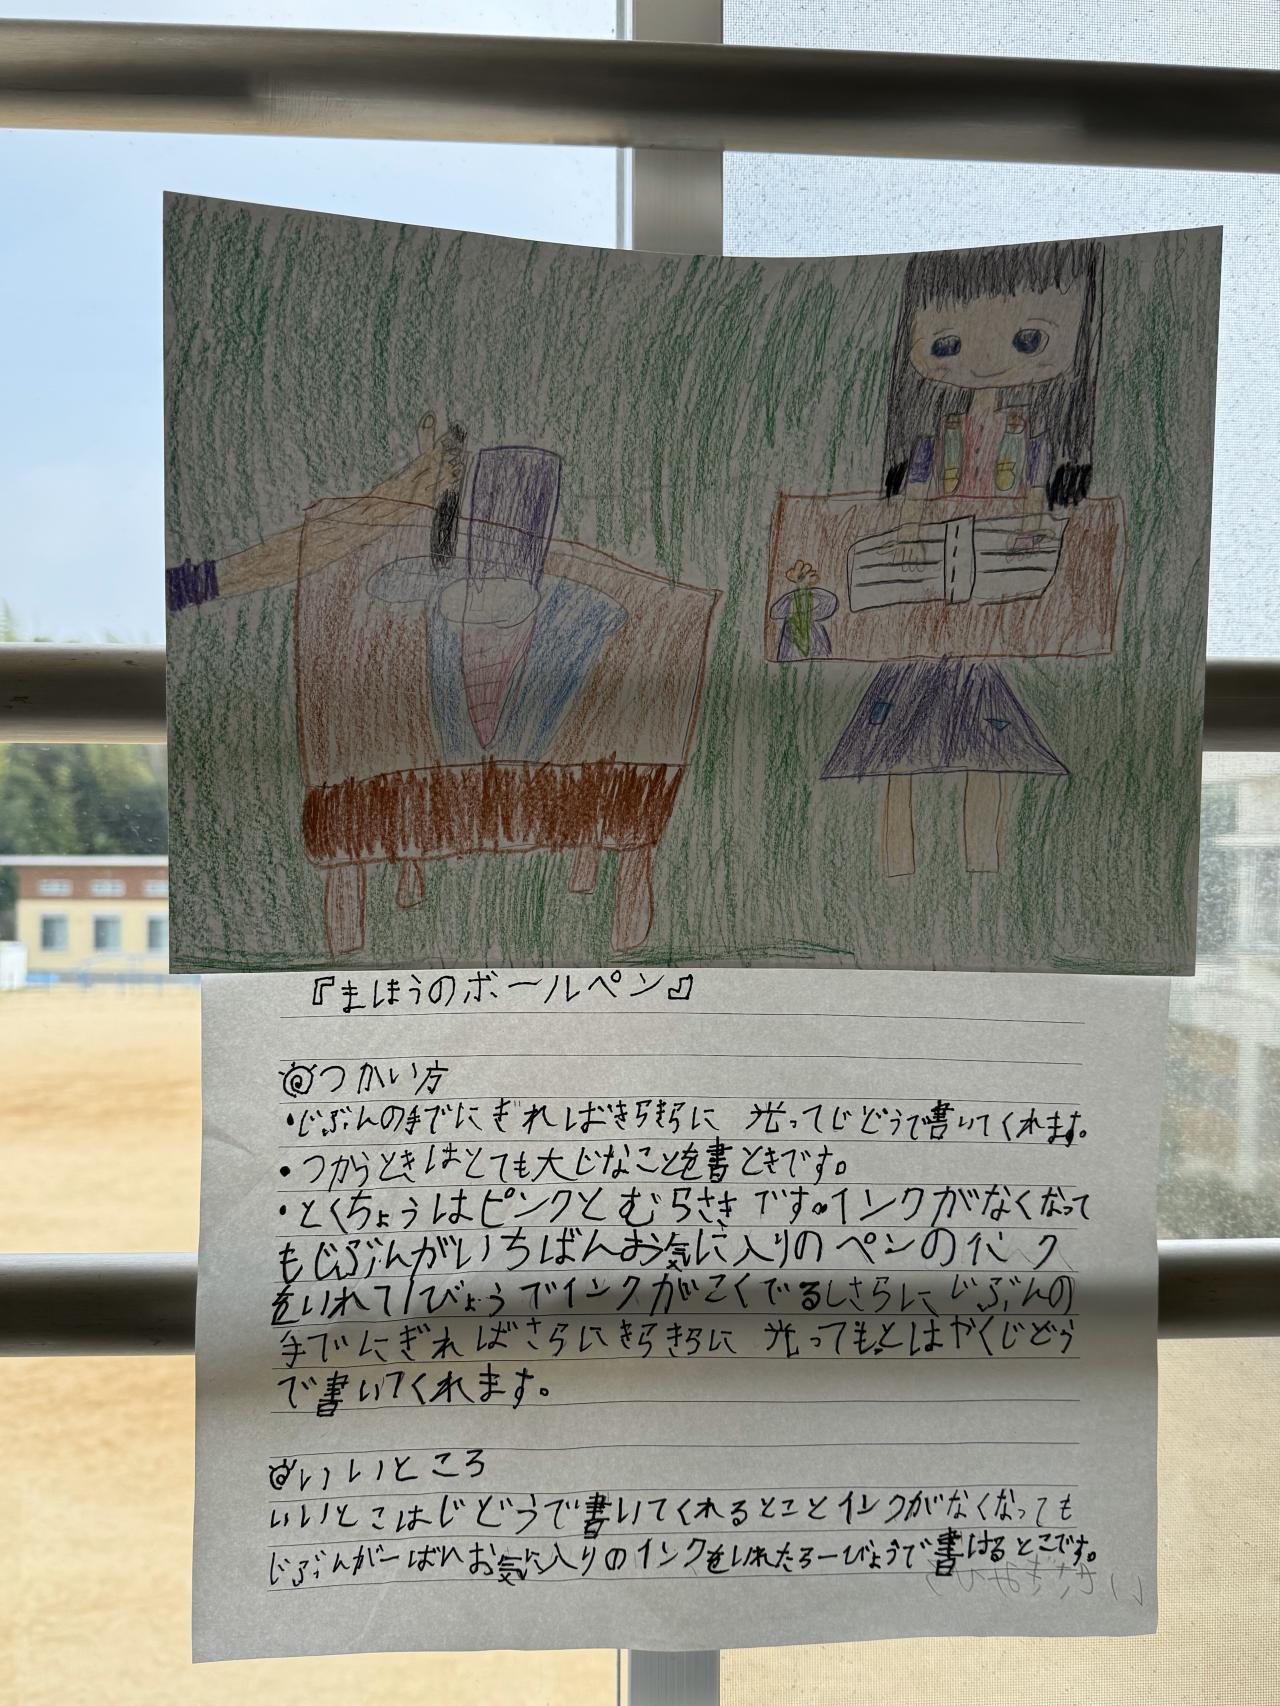 『まほうのボールペン』
@つかい方
・じぶんの手でにぎればきらきらに 光ってじどうで書いてくれます。
・つかうときはとても大じなことを書ときです。
・とくちょうはピンクとむらさきです。インクがなくなって
もじぶんがいちばんお気に入りのペンのインク
をいれて1びょうでインクがこくでるしさらにじぶんの
手でにぎればさらにきらきらに 光ってもとはやくじどう
で書いてくれます。
@いいところ
いいとこはじどうで書いてくれるとことインクがなくなっても
じぶんが一ばんお気に入りのインクをいれたら一びょうで書けるとこです。